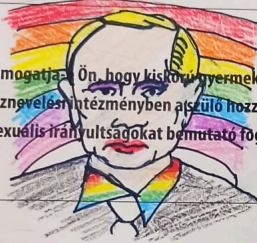 mogatja- Ön, hogy kiskorú gyermek
znevelési intézményben a szülő hozz
exuális irányultságokat bemutató fog